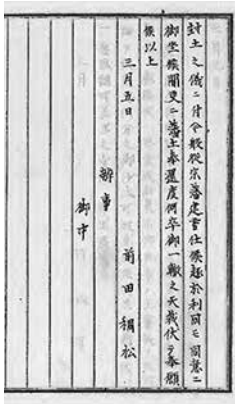 封土之儀ニ付今般従宗藩建言仕候趣於利鬯モ同意ニ
御坐候間更ニ藩土奉還度何卒御一轍之天裁伏テ奉願
候以上
三月五日
前田稠松
辨事
御中